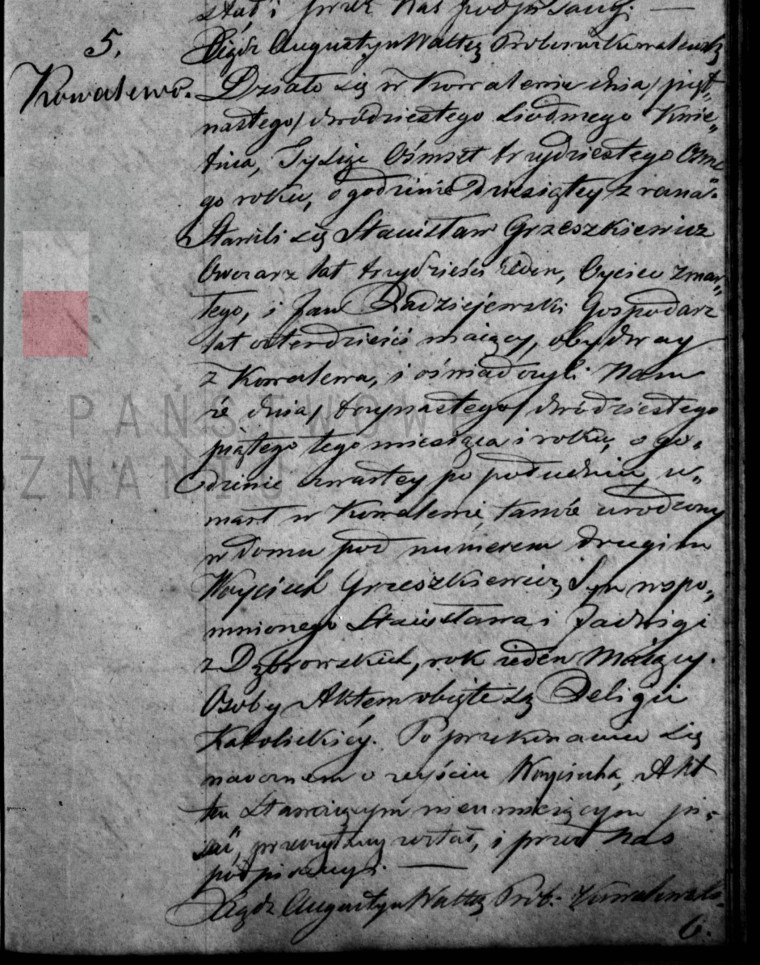 stał i przez Nas podpisany. —
Xiądz Augustyn Waltzą Proboszcz Kowalewski
5.
Kowalewo.
Działo się w Kowalewie dnia / pięt-
nastego / dwódziestego siódmego Kwie-
tnia, Tysiąc Ośmset trzydziestego Osme-
go roku, o godzinie Dziesiątey z rana.
Stawili się Stanisław Grzeszkiewicz
Owczarz lat trzydzieści Jeden, Oyciec zmar-
łego, i Jan Radziejewski Gospodarz
lat czterdzieści maiący, obydway
z Kowalewa, i oświadczyli Nam
że dnia / trzynastego / dwódziestego
piątego tego miesiąca i roku, o go-
dzinie czwartey po południu u-
marł w Kowalewie, tamże urodzony
w domu pod numerem drugim
Woyciech Grzeszkiewicz, Syn wspo-
mnionego Stanisława i Jadwigi
z Dąbrowskich, rok ieden Maiący.
Osoby Aktem obięte są Religii
Katolickiéy. Po przekonaniu się
naocznem o zeyściu Woyciecha, Akt
ten Stawaiącym nieumieiącym pi-
sać, przeczytany został, i przez Nas
podpisany. —
Xiądz Augustyn Waltzą Prob. Kowalewski
6.
PAŃSTWOWE
ZNANIU